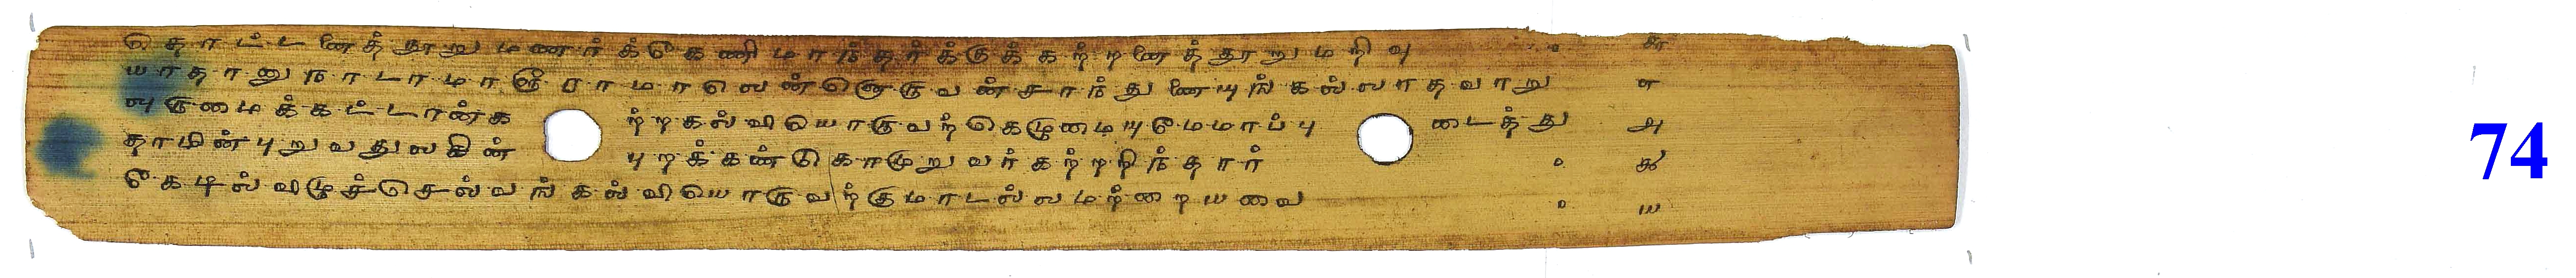 தொட்டனைத் தூறு மணற்க்கேணி மாந்தர்க்குக் கற்றனைத் தூறு மறிவு ௬
யாதானு நாடாமா லூராமா லென்னொருவன் சாந்துணையுங் கல்லாதவாறு ௭
யொருமைக்கட்டான்க ற்றகல்வி யொருவற்கெழுமையு மேமாப்பு டைத்து ௮
தாமின்புறுவதுலகின் புறக்கண்டு காமுறுவர் கற்றறிந்தார் ௯
கேடில் விழுச்செல்வங் கல்வி யொருவற்கு மாடல்ல மற்றையவை ௰
74